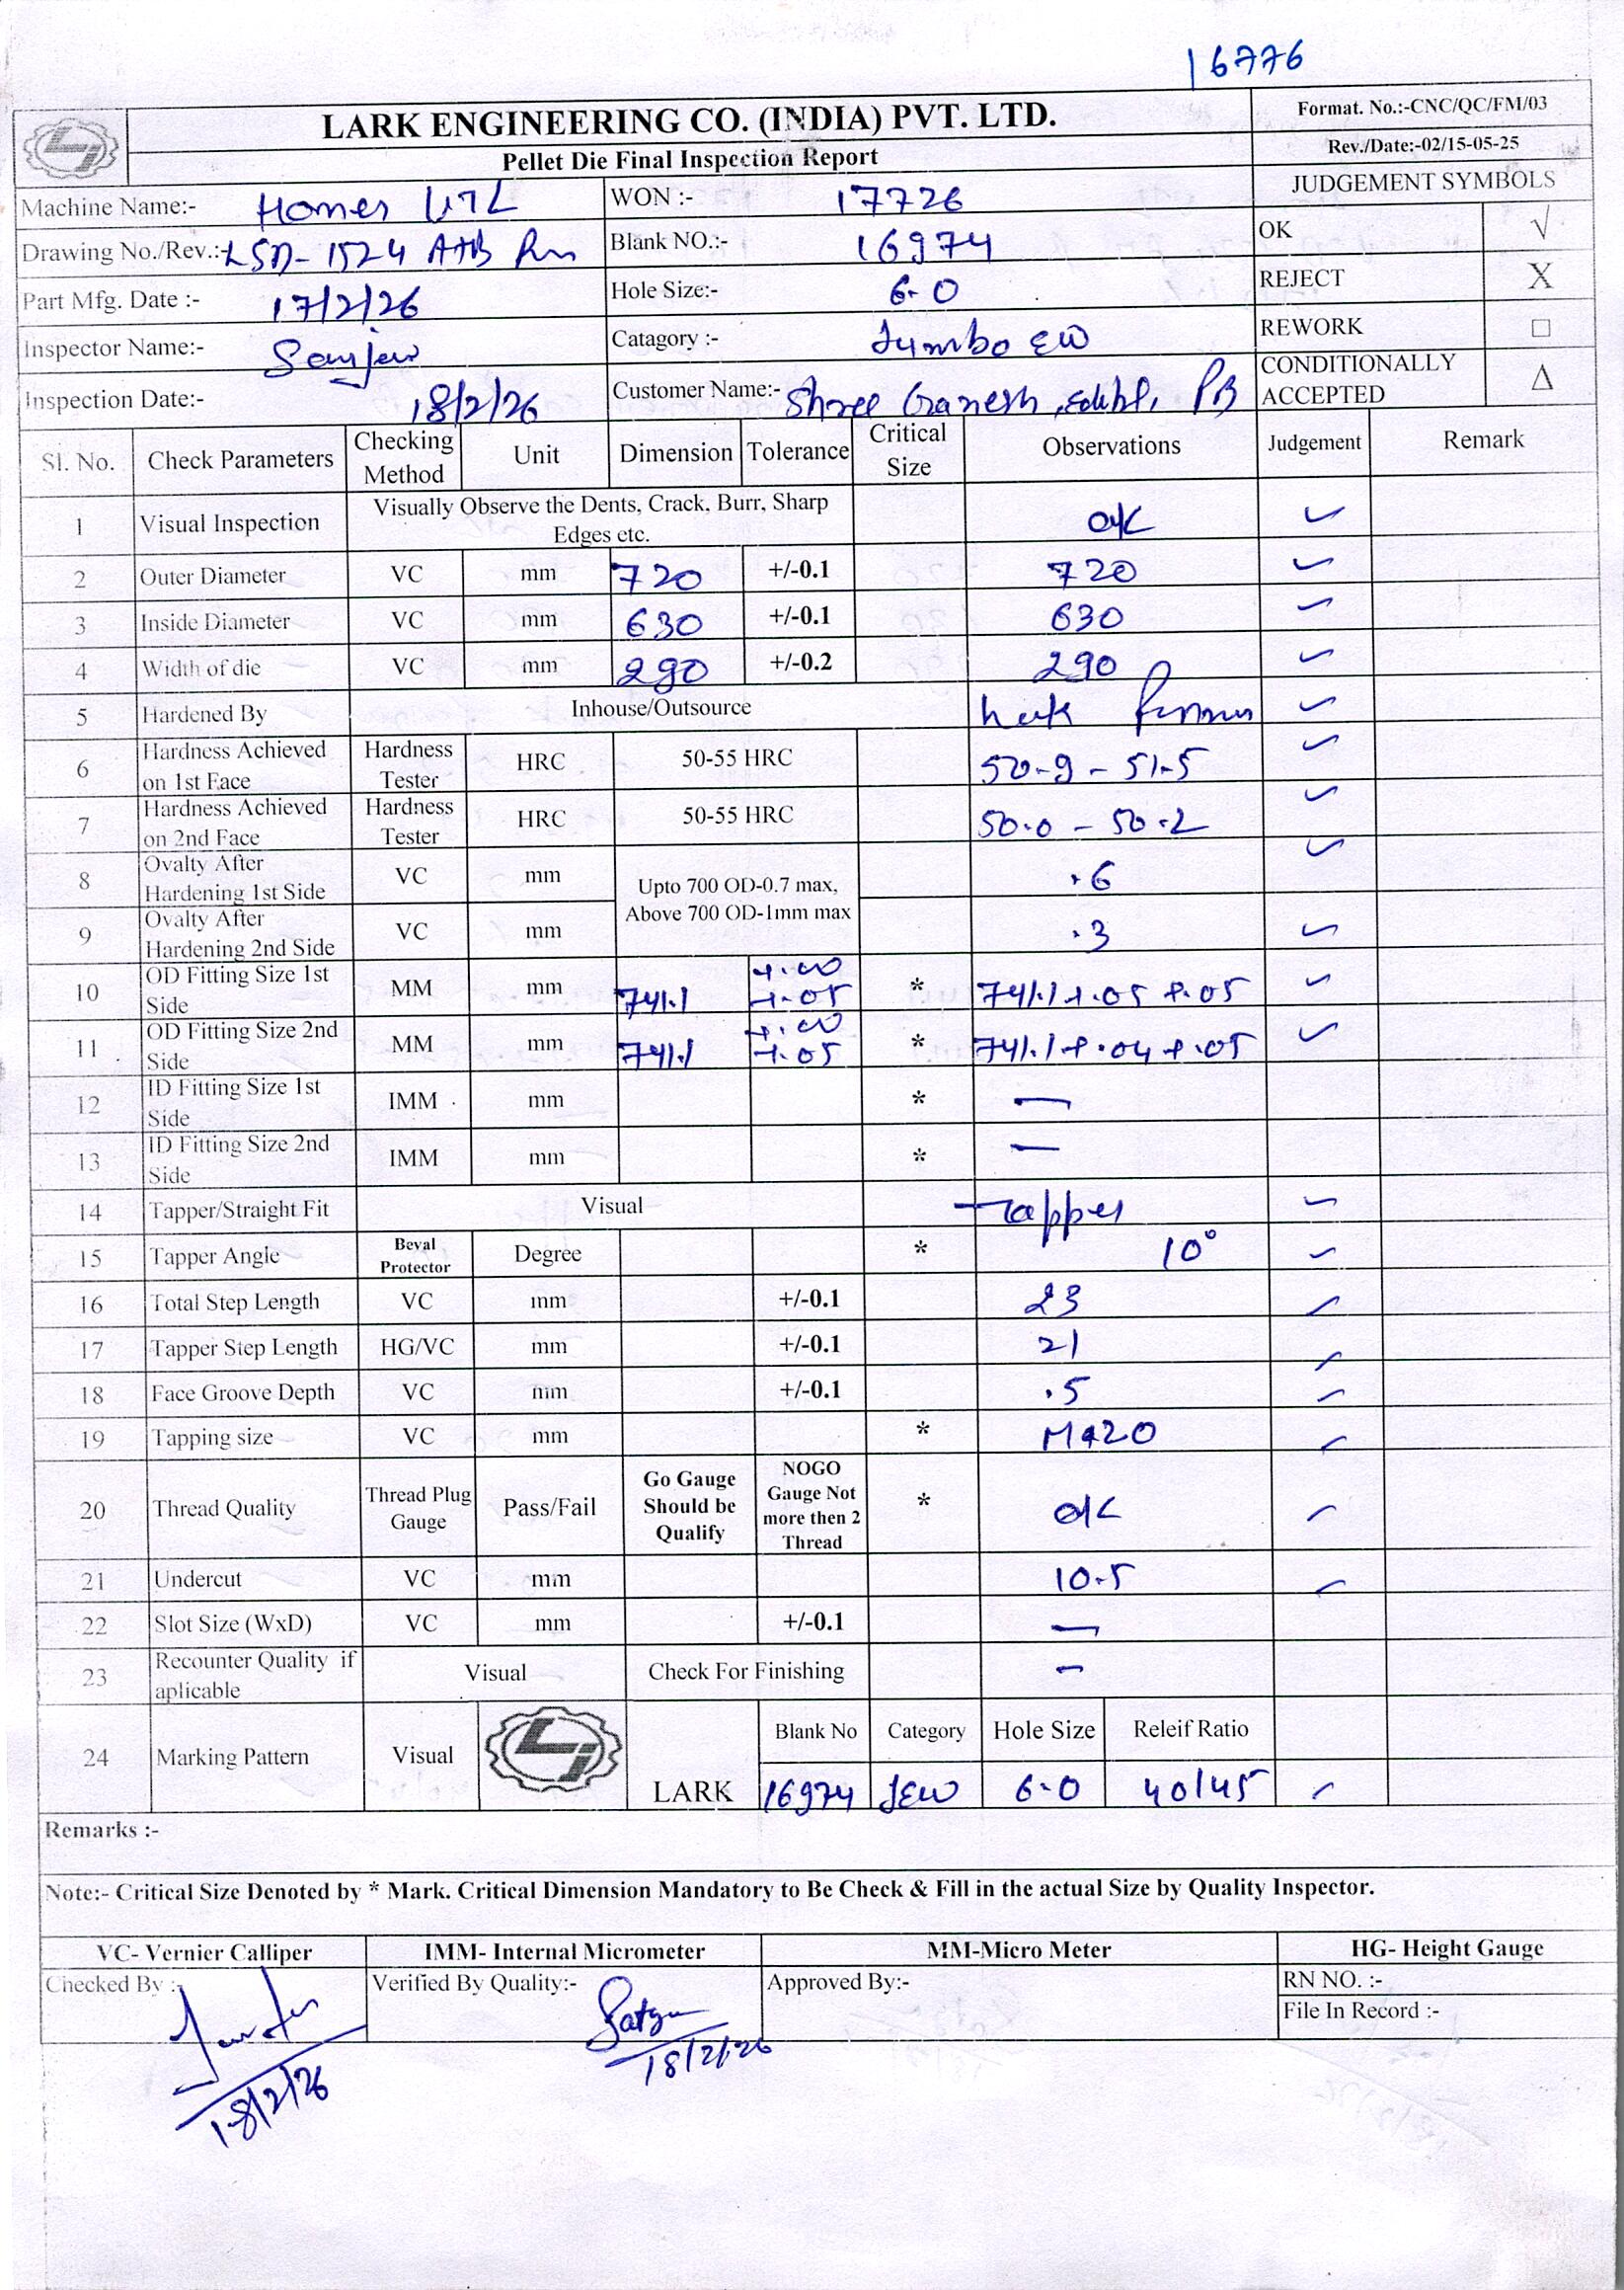 16776
LARK ENGINEERING CO. (INDIA) PVT. LTD.
Pellet Die Final Inspection Report
Format. No.:-CNC/QC/FM/03
Rev./Date:-02/15-05-25
JUDGEMENT SYMBOLS
Machine Name:- WON :- 17726
Drawing No./Rev.:- LSD-1524 Blank NO.:- 16974 OK √
Part Mfg. Date :- 17/2/26 Hole Size:- 6.0 REJECT X
Inspector Name:- Catagory :- Jumbo EW REWORK □
Inspection Date:- 18/2/26 Customer Name:- Shree Ganesh CONDITIONALLY ACCEPTED Δ
Sl. No. Check Parameters Checking Method Unit Dimension Tolerance Critical Size Observations Judgement Remark
1 Visual Inspection Visually Observe the Dents, Crack, Burr, Sharp Edges etc. OK ✓
2 Outer Diameter VC mm 720 +/-0.1 720 ✓
3 Inside Diameter VC mm 630 +/-0.1 630 ✓
4 Width of die VC mm 290 +/-0.2 290 ✓
5 Hardened By Inhouse/Outsource ✓
6 Hardness Achieved on 1st Face Hardness Tester HRC 50-55 HRC 50.9 - 51.5 ✓
7 Hardness Achieved on 2nd Face Hardness Tester HRC 50-55 HRC 50.0 - 50.2 ✓
8 Ovalty After Hardening 1st Side VC mm Upto 700 OD-0.7 max, Above 700 OD-1mm max .6 ✓
9 Ovalty After Hardening 2nd Side VC mm .3 ✓
10 OD Fitting Size 1st Side MM mm 741.1 +.00 +.05 * 741.1 +.05 +.05 ✓
11 OD Fitting Size 2nd Side MM mm 741.1 +.00 +.05 * 741.1 +.04 +.05 ✓
12 ID Fitting Size 1st Side IMM mm * —
13 ID Fitting Size 2nd Side IMM mm * —
14 Tapper/Straight Fit Visual Tapper ✓
15 Tapper Angle Beval Protector Degree * 10° ✓
16 Total Step Length VC mm +/-0.1 23 ✓
17 Tapper Step Length HG/VC mm +/-0.1 21 ✓
18 Face Groove Depth VC mm +/-0.1 .5 ✓
19 Tapping size VC mm * M20 ✓
20 Thread Quality Thread Plug Gauge Pass/Fail Go Gauge Should be Qualify NOGO Gauge Not more then 2 Thread * OK ✓
21 Undercut VC mm 10.5 ✓
22 Slot Size (WxD) VC mm +/-0.1 —
23 Recounter Quality if aplicable Visual Check For Finishing —
24 Marking Pattern Visual LARK Blank No Category Hole Size Releif Ratio
16974 JEW 6.0 40/45 ✓
Remarks :-
Note:- Critical Size Denoted by * Mark. Critical Dimension Mandatory to Be Check & Fill in the actual Size by Quality Inspector.
VC- Vernier Calliper IMM- Internal Micrometer MM-Micro Meter HG- Height Gauge
Checked By :- Verified By Quality:- Approved By:- RN NO. :-
File In Record :-
18/2/26 18/2/26